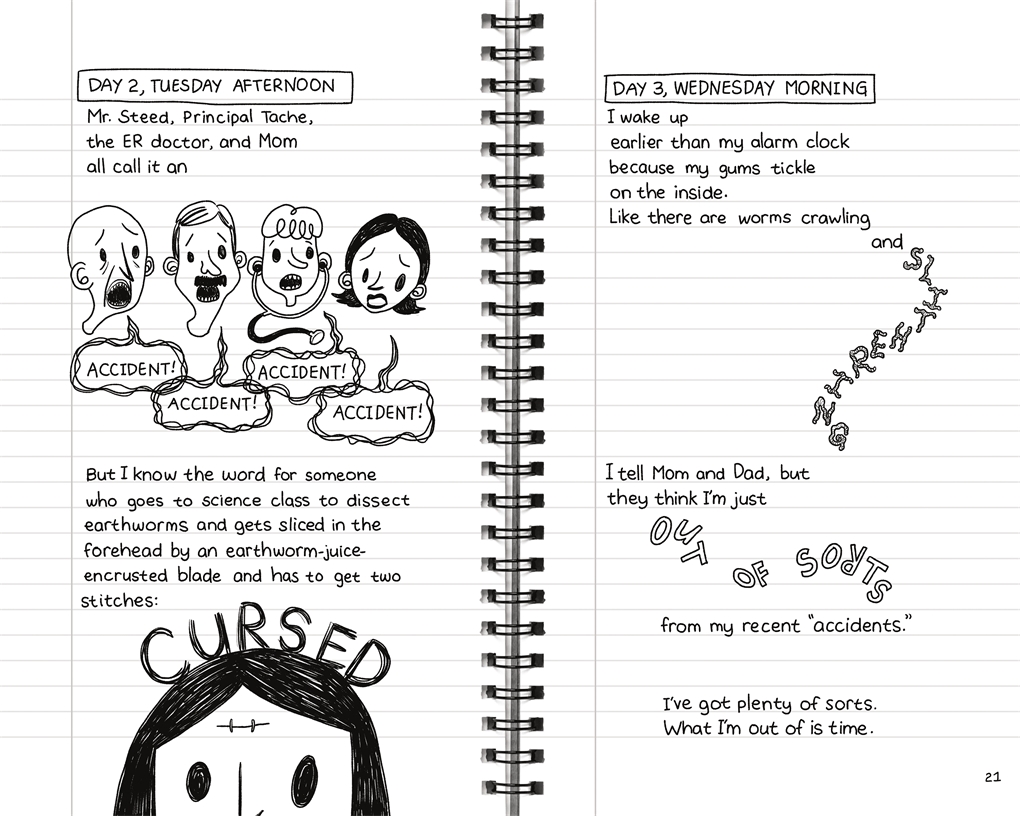 DAY 2, TUESDAY AFTERNOON
Mr. Steed, Principal Tache,
the ER doctor, and Mom
all call it an
ACCIDENT!
ACCIDENT!
ACCIDENT!
ACCIDENT!
But I know the word for someone
who goes to science class to dissect
earthworms and gets sliced in the
forehead by an earthworm-juice-
encrusted blade and has to get two
stitches:
CURSED
DAY 3, WEDNESDAY MORNING
I wake up
earlier than my alarm clock
because my gums tickle
on the inside.
Like there are worms crawling
and
SLITHERING
I tell Mom and Dad, but
they think I'm just
OUT OF SORTS
from my recent "accidents."
I've got plenty of sorts.
What I'm out of is time.
21